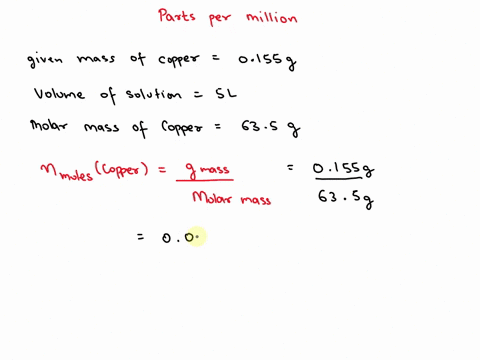 Parts per million
given mass of copper = 0.155g
Volume of solution = 5L
Molar mass of Copper = 63.5 g
n moles (Copper) = g mass / Molar mass = 0.155g / 63.5g
= 0.0